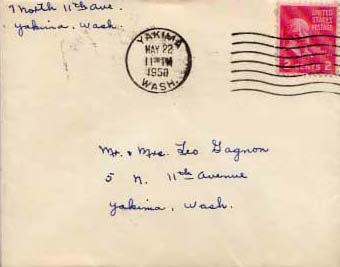 7 North 11th ave.
Yakima, Wash.
YAKIMA
MAY 22
11 30 PM
1950
WASH.
UNITED
STATES
POSTAGE
2 CENTS 2
Mr. & Mrs. Leo Gagnon
5 N. 11th Avenue
Yakima, Wash.